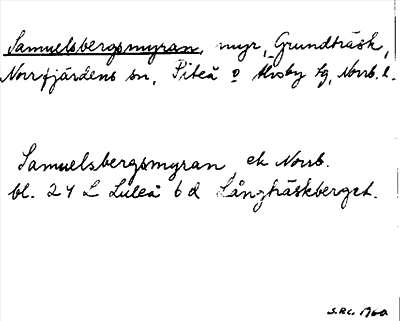 Samuelsbergsmyran, myr, Grundträsk,
Norrfjärdens sn, Piteå o Älvsby tg, Norrb. l.
Samuelsbergsmyran, ek Norrb.
bl. 24 L Luleå 6 d Långträskberget.
S.R.C. 1960